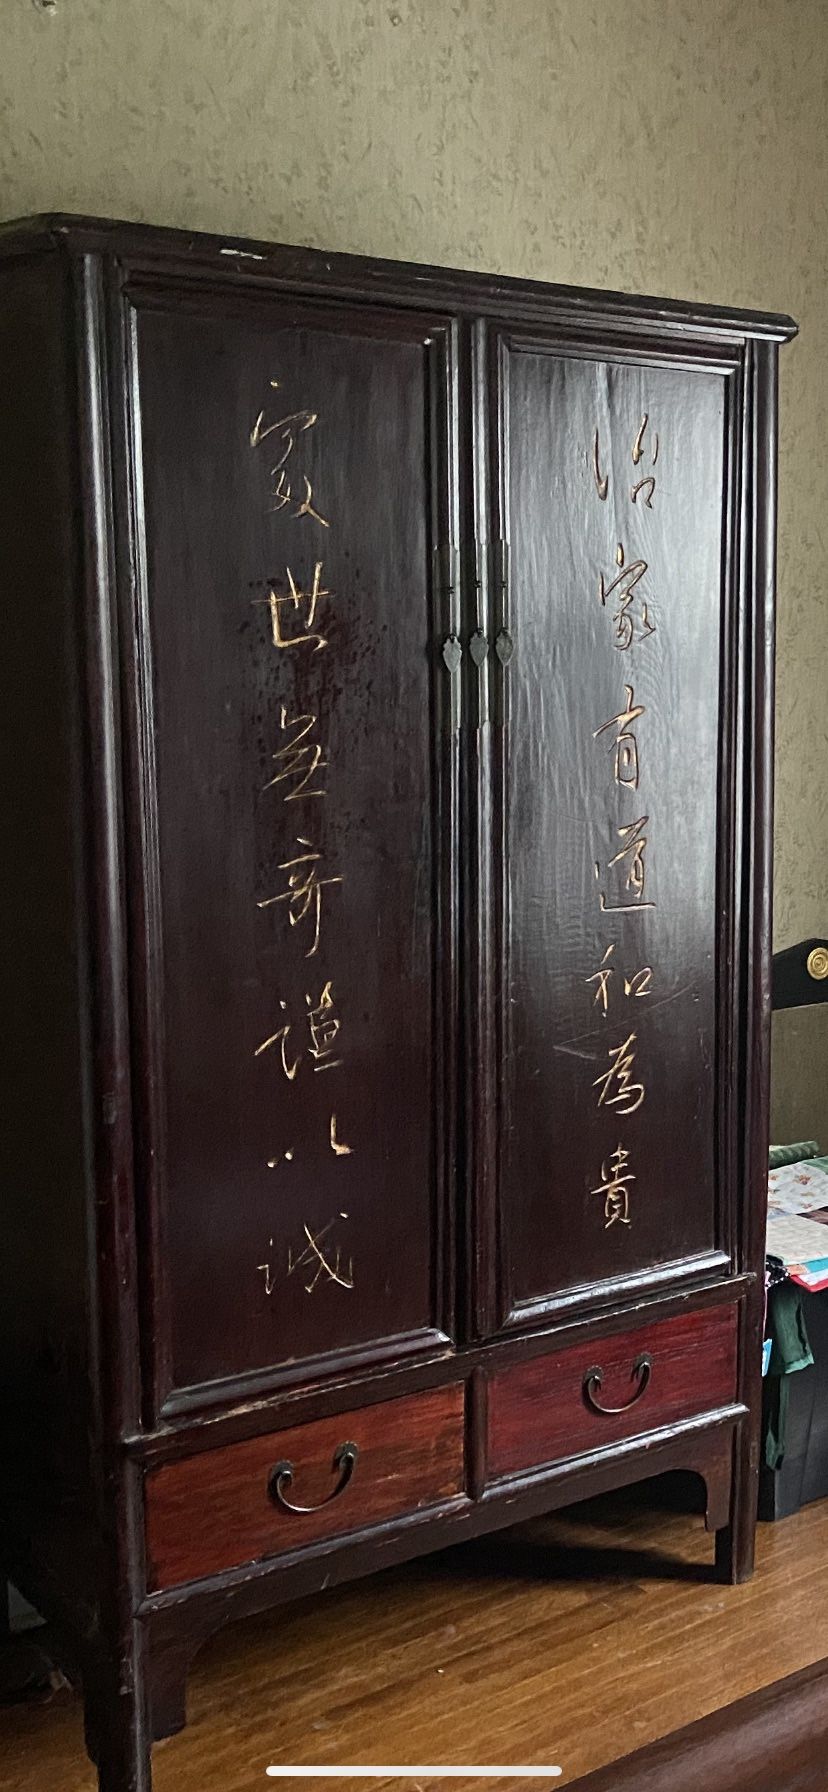 治家有道和為貴
處世無奇謹以誠